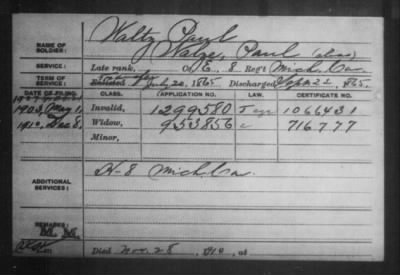 Waltz, Paul
NAME OF SOLDIER:
Walze, Paul (alias)
SERVICE:
Late rank, Co. 8 Reg't Mich. Cav
TERM OF SERVICE:
Enlisted July 20, 1865 Discharged Sept 22, 1865.
DATE OF FILING. CLASS. APPLICATION NO. LAW. CERTIFICATE NO.
1903, May 1, Invalid, 1299580 1066431
1910, Dec 8, Widow, 953856 716777
Minor,
ADDITIONAL SERVICES:
H-8 Mich Cav
REMARKS:
M. M.
Died Nov. 28, 1910, at